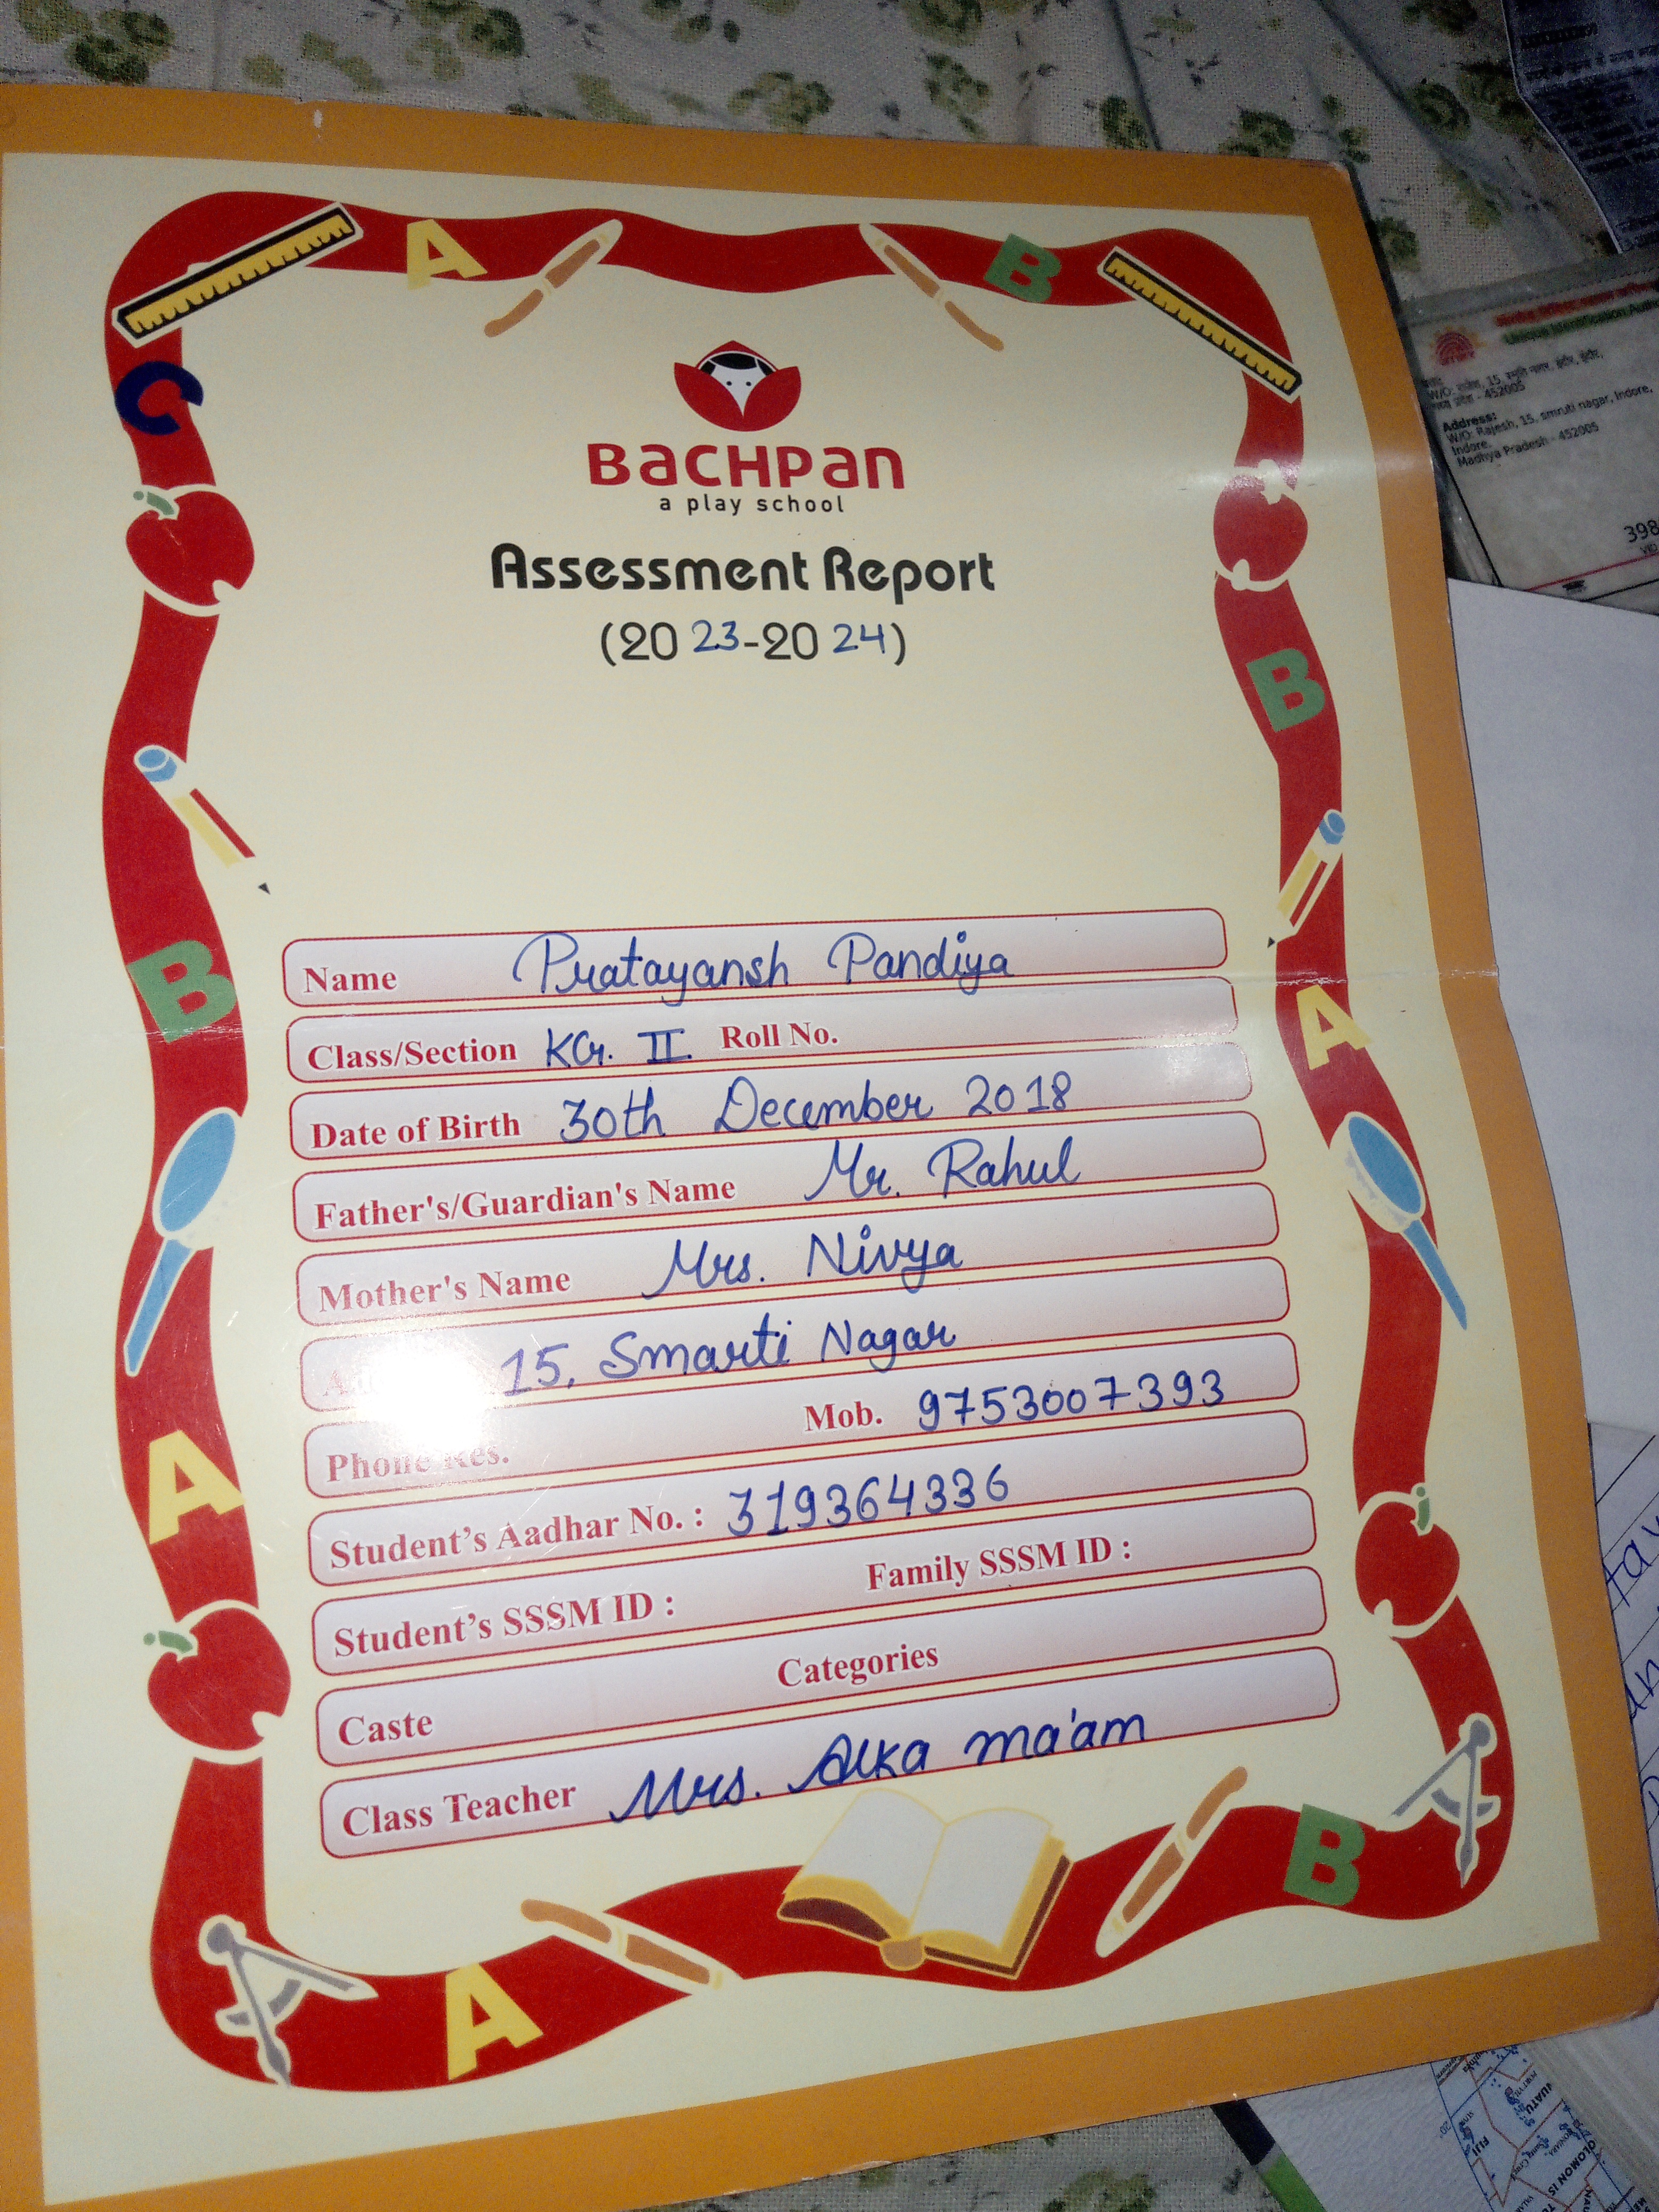 BACHPAN
a play school
Assessment Report
(20 23-20 24)
Name Pratayansh Pandiya
Class/Section KG. II. Roll No.
Date of Birth 30th December 2018
Father's/Guardian's Name Mr. Rahul
Mother's Name Mrs. Nivya
15, Smarti Nagar
Phone Res. Mob. 9753007393
Student's Aadhar No. : 319364336
Student's SSSM ID : Family SSSM ID :
Caste Categories
Class Teacher Mrs. Alka ma'am
Address:
W/O: Rajesh, 15, smruti nagar, Indore,
Indore,
Madhya Pradesh - 452005
398
FIJI